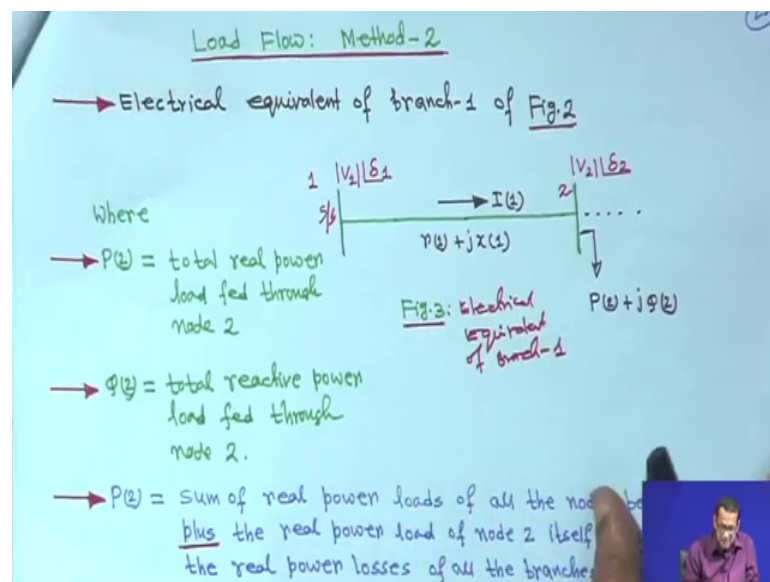 Load Flow: Method-2
→ Electrical equivalent of branch-1 of Fig.2
1 |V1|∠δ1
|V2|∠δ2
S/S
I(1)
2
r(1)+jx(1)
P(2)+jQ(2)
Fig.3: Electrical
equivalent
of branch-1
where
→ P(2) = total real power
load fed through
node 2
→ Q(2) = total reactive power
load fed through
node 2.
→ P(2) = sum of real power loads of all the
plus the real power load of node 2 itself
the real power losses of all the branches